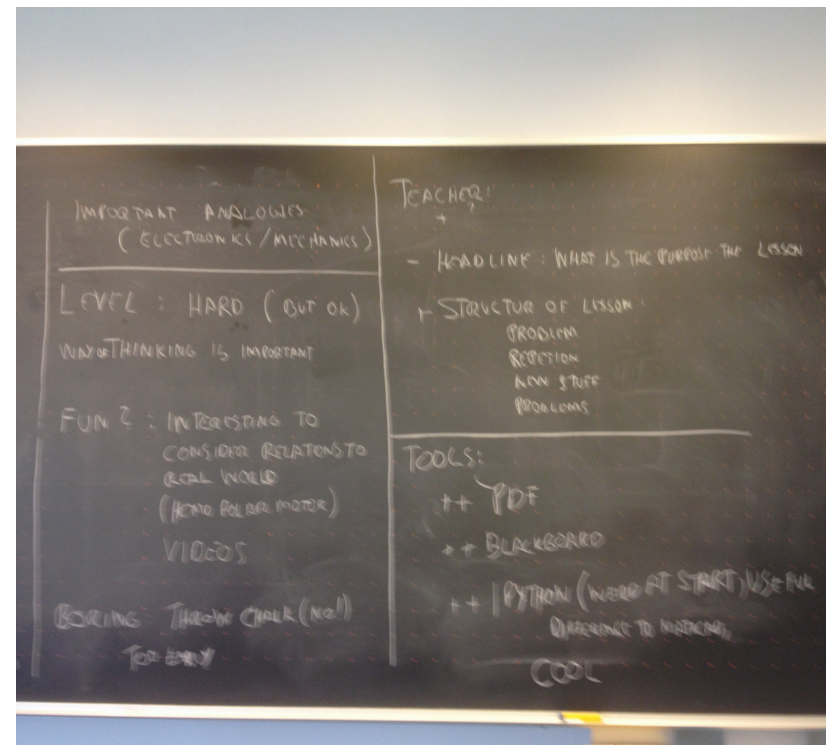 IMPORTANT ANALOGIES
(ELECTRONICS/MECHANICS)
LEVEL : HARD (BUT OK)
WAY OF THINKING IS IMPORTANT
FUN ? : INTERESTING TO
CONSIDER RELATIONS TO
REAL WORLD
(HOMO POLAR MOTOR)
VIDEOS
BORING THROW CHALK (NO!)
TOO
TEACHER:
+
- HEADLINE : WHAT IS THE PURPOSE THE LESSON
+ STRUCTUR OF LESSON :
PROBLEM
REPETION
NEW STUFF
PROBLEMS
TOOLS:
++ PDF
++ BLACKBOARD
++ IPYTHON (WEIRD AT START) USEFUL
DIFFERENCE TO
COOL